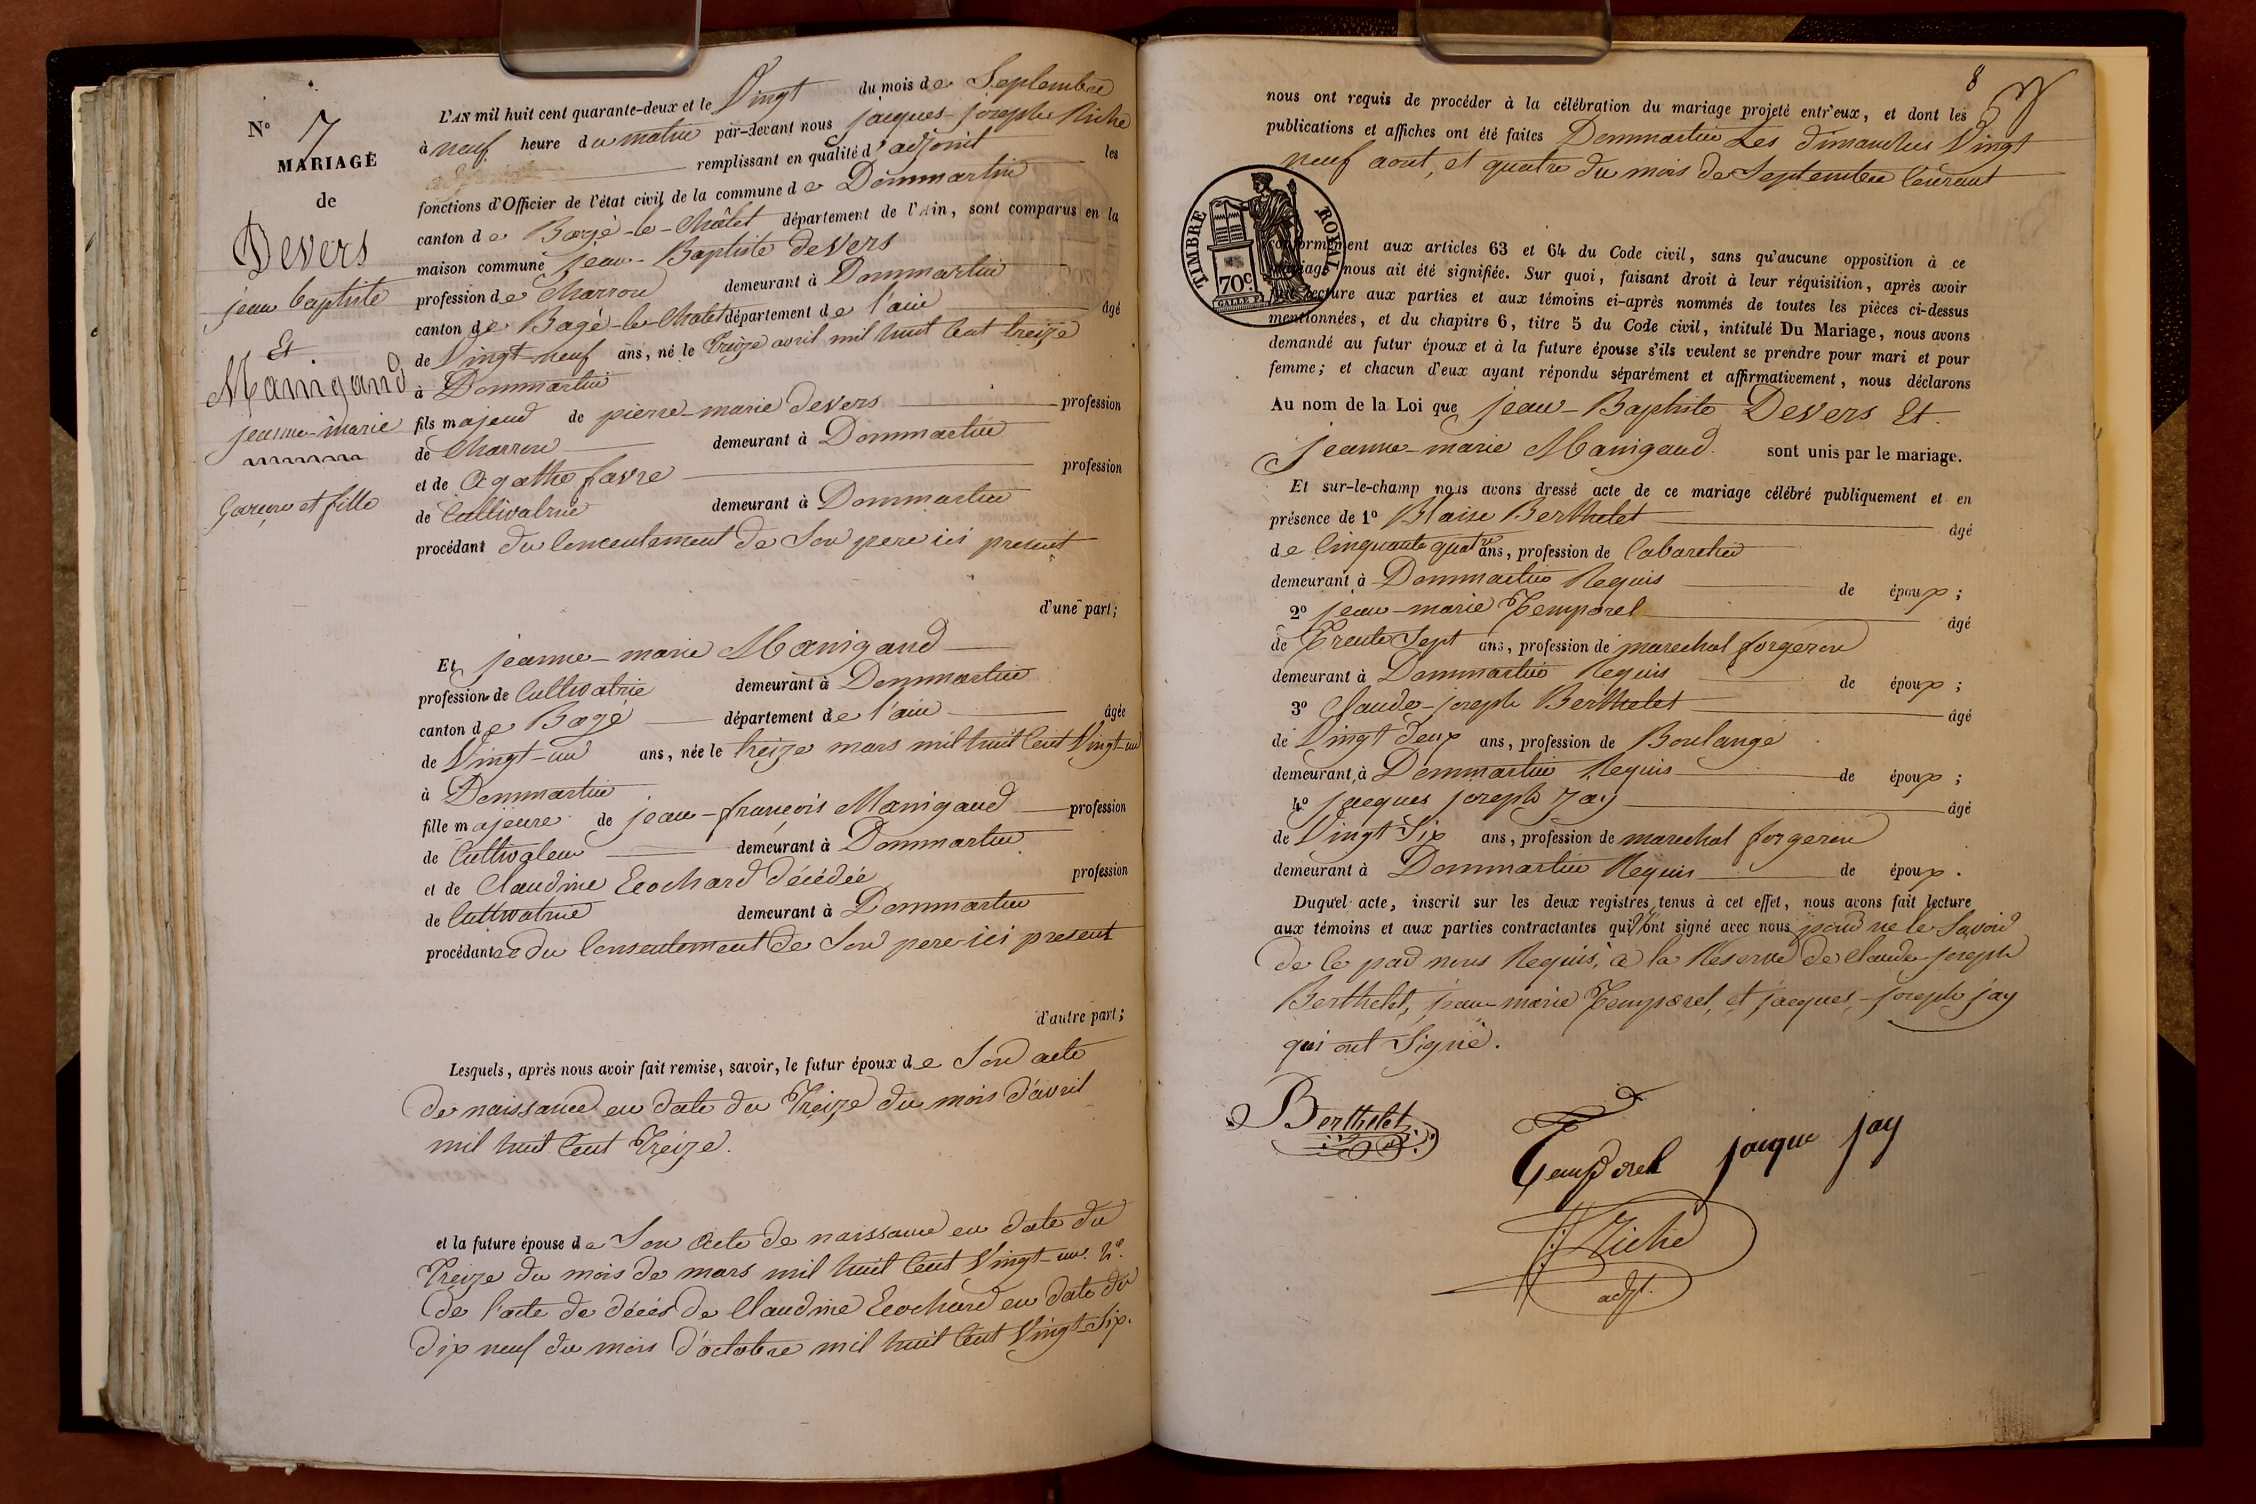 N° 7
MARIAGE
de
Devers
jean baptiste
Et
Manigand
jeanne-marie
Garçon et fille
L'AN mil huit cent quarante-deux et le Vingt du mois de Septembre
à neuf heure du matin par-devant nous jacques-joseph Riche
remplissant en qualité d'adjoint les
fonctions d'Officier de l'état civil de la commune de Dommartin
canton de Bagé-le-Châtel département de l'Ain, sont comparus en la
maison commune jean-Baptiste Devers
profession de Charron demeurant à Dommartin
canton de Bagé-le-Chatel département de l'ain âgé
de Vingt-neuf ans, né le Treize avril mil huit Cent treize
à Dommartin
fils majeur de pierre-marie Devers profession
de Charron demeurant à Dommartin
et de Agathe favre profession
de Cultivatrice demeurant à Dommartin
procédant du Concentement de Son pere ici present
d'une part;
Et jeanne-marie Manigand
profession de Cultivatrice demeurant à Dommartin
canton de Bagé département de l'ain âgée
de Vingt-un ans, née le treize mars mil huit Cent Vingt-un
à Dommartin
fille majeure de jean-françois Manigand profession
de Cultivateur demeurant à Dommartin
et de Claudine Ecochard décédée profession
de Cultivatrice demeurant à Dommartin
procédante du Consentement de Son pere ici present
d'autre part;
Lesquels, après nous avoir fait remise, savoir, le futur époux de Son acte
de naissance en date du Treize du mois d'avril
mil huit Cent Treize.
et la future épouse de Son Acte de naissance en date du
Treize du mois de mars mil huit Cent Vingt-un. 2°.
de l'acte de décés de Claudine Ecochard en date du
dix neuf du mois d'octobre mil huit Cent Vingt-Six.
8
nous ont requis de procéder à la célébration du mariage projeté entr'eux, et dont les
publications et affiches ont été faites Dommartin Les dimanches Vingt
neuf aout, et quatre du mois de Septembre Courant
TIMBRE ROYAL
70c
conformément aux articles 63 et 64 du Code civil, sans qu'aucune opposition à ce
mariage nous ait été signifiée. Sur quoi, faisant droit à leur réquisition, après avoir
fait lecture aux parties et aux témoins ci-après nommés de toutes les pièces ci-dessus
mentionnées, et du chapitre 6, titre 5 du Code civil, intitulé Du Mariage, nous avons
demandé au futur époux et à la future épouse s'ils veulent se prendre pour mari et pour
femme; et chacun d'eux ayant répondu séparément et affirmativement, nous déclarons
Au nom de la Loi que jean-Baptiste Devers Et
jeanne-marie Manigand. sont unis par le mariage.
Et sur-le-champ nous avons dressé acte de ce mariage célébré publiquement et en
présence de 1° Blaise Berthelet âgé
de Cinquante quatre ans, profession de Cabaretier
demeurant à Dommartin Requis de époux;
2° jean-marie Temporel âgé
de Trente Sept ans, profession de marechal forgeron
demeurant à Dommartin Requis de époux;
3° Claude-joseph Berthelet âgé
de Vingt deux ans, profession de Boulangé
demeurant à Dommartin Requis de époux;
4° jacques joseph jay âgé
de Vingt Six ans, profession de marechal forgeron
demeurant à Dommartin Requis de époux.
Duquel acte, inscrit sur les deux registres tenus à cet effet, nous avons fait lecture
aux témoins et aux parties contractantes qui n'ont signé avec nous pour ne le Savoir
de ce par nous Requis, à la Réserve de Claude-joseph
Berthelet, jean-marie Temporel, et jacques-joseph jay
qui ont Signé.
Berthelet
Temporel
jacque jay
Riche
adjt.